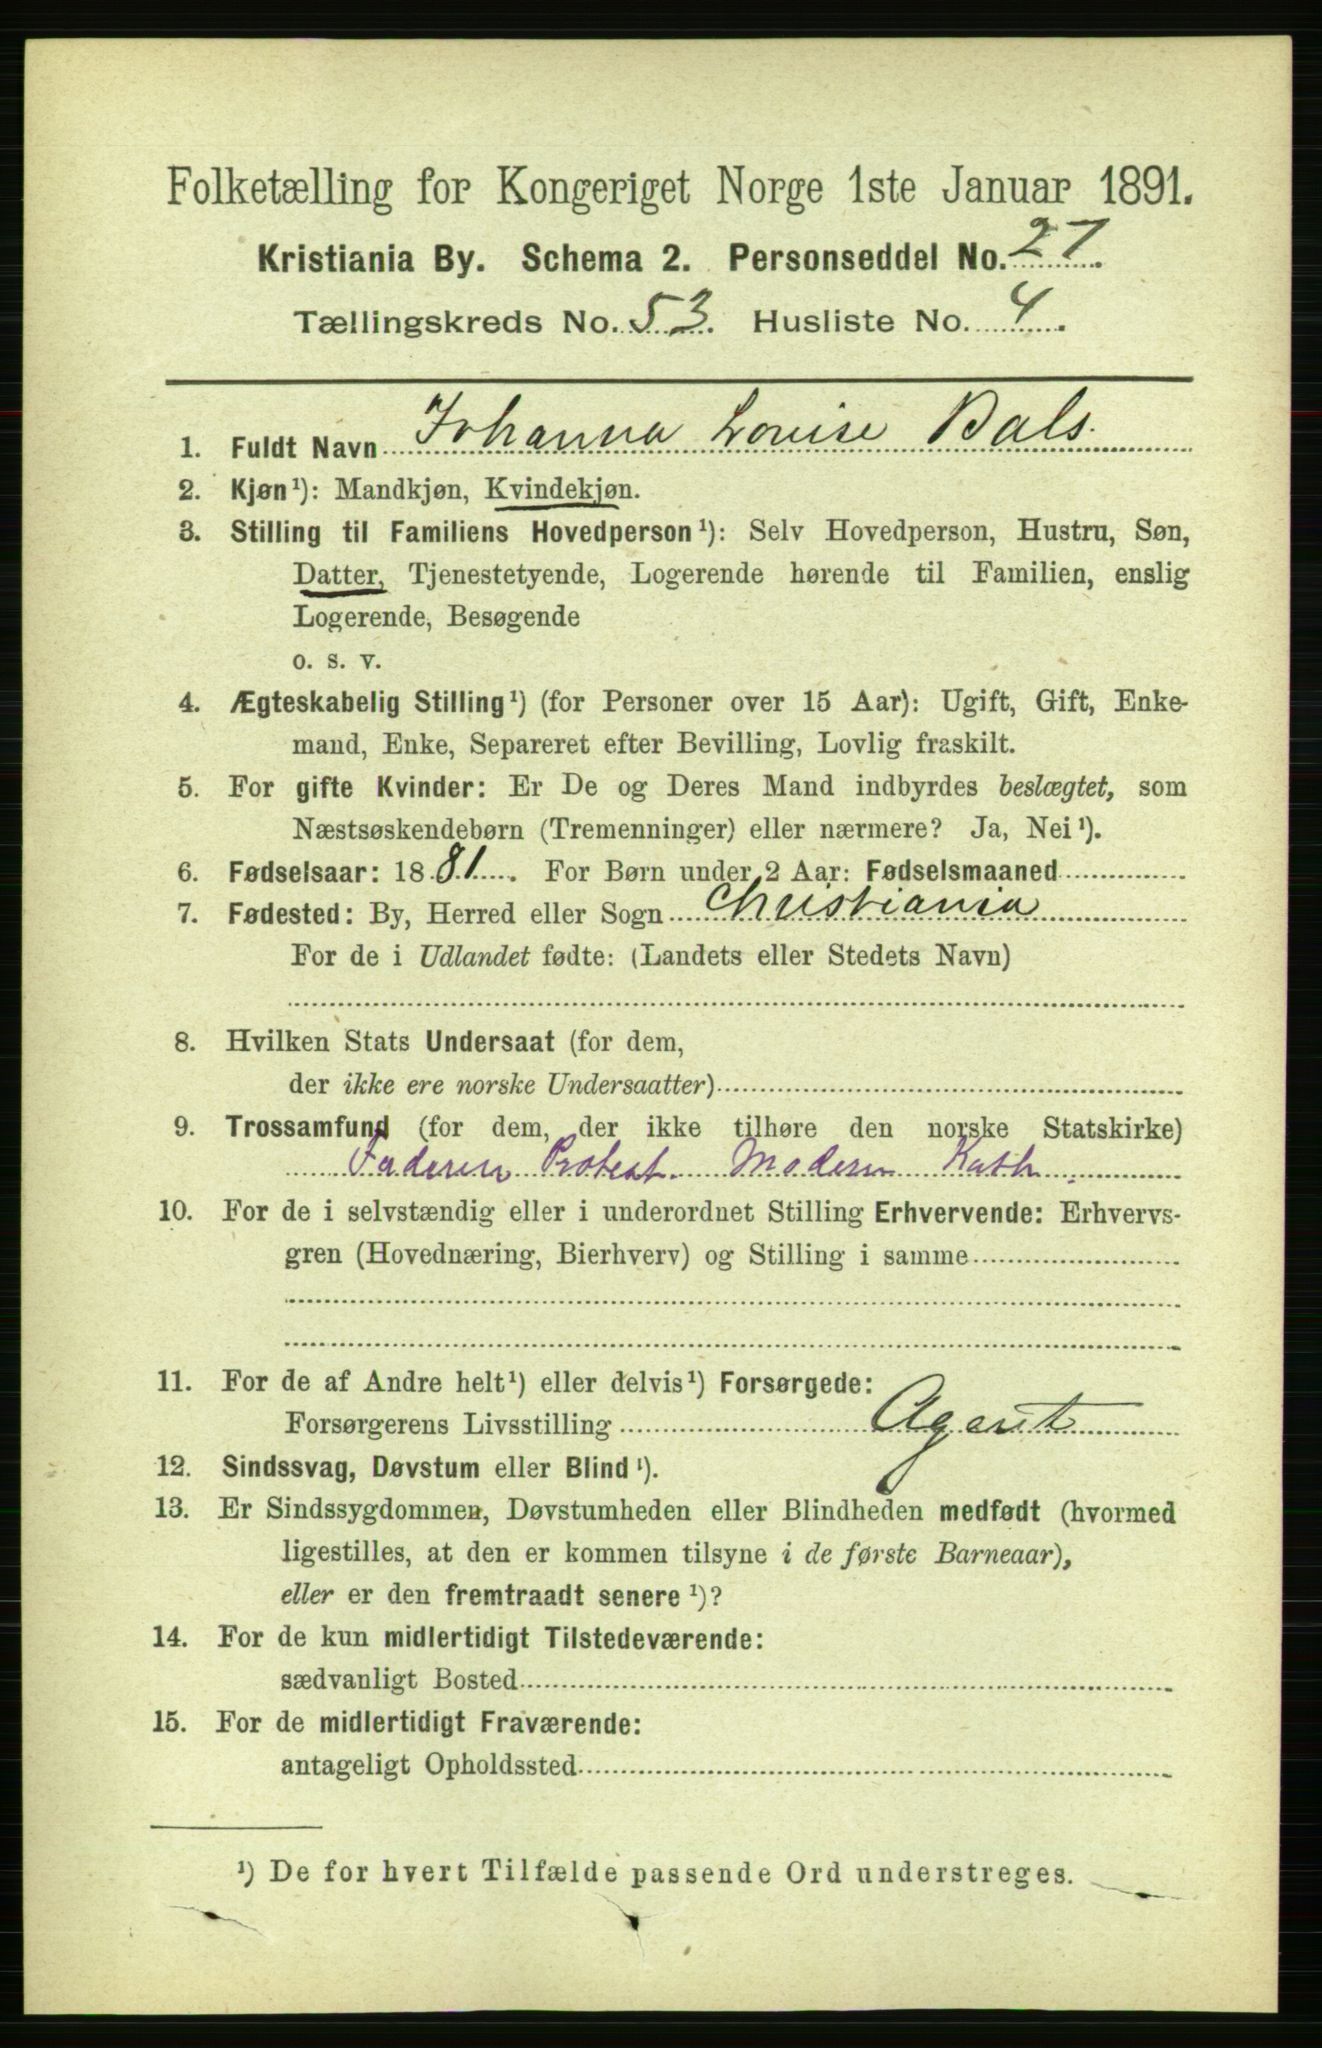 Folketælling for Kongeriget Norge 1ste Januar 1891.
Kristiania By. Schema 2. Personseddel No. 27.
Tællingskreds No. 53. Husliste No. 4.
1. Fuldt Navn Johanna Louise Bals.
2. Kjøn¹): Mandkjøn, Kvindekjøn.
3. Stilling til Familiens Hovedperson¹): Selv Hovedperson, Hustru, Søn,
Datter, Tjenestetyende, Logerende hørende til Familien, enslig
Logerende, Besøgende
o. s. v.
4. Ægteskabelig Stilling¹) (for Personer over 15 Aar): Ugift, Gift, Enke-
mand, Enke, Separeret efter Bevilling, Lovlig fraskilt.
5. For gifte Kvinder: Er De og Deres Mand indbyrdes beslægtet, som
Næstsøskendebørn (Tremenninger) eller nærmere? Ja, Nei¹).
6. Fødselsaar: 1881. For Børn under 2 Aar: Fødselsmaaned
7. Fødested: By, Herred eller Sogn Christiania
For de i Udlandet fødte: (Landets eller Stedets Navn)
8. Hvilken Stats Undersaat (for dem,
der ikke ere norske Undersaatter)
9. Trossamfund (for dem, der ikke tilhøre den norske Statskirke)
Faderen Protest. Moderen Kath.
10. For de i selvstændig eller i underordnet Stilling Erhvervende: Erhvervs-
gren (Hovednæring, Bierhverv) og Stilling i samme
11. For de af Andre helt¹) eller delvis¹) Forsørgede:
Forsørgerens Livsstilling Agent
12. Sindssvag, Døvstum eller Blind¹).
13. Er Sindssygdommen, Døvstumheden eller Blindheden medfødt (hvormed
ligestilles, at den er kommen tilsyne i de første Barneaar),
eller er den fremtraadt senere¹)?
14. For de kun midlertidigt Tilstedeværende:
sædvanligt Bosted
15. For de midlertidigt Fraværende:
antageligt Opholdssted
¹) De for hvert Tilfælde passende Ord understreges.